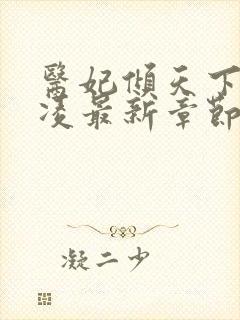 醫妃傾天下
凌最新章節
凝二少